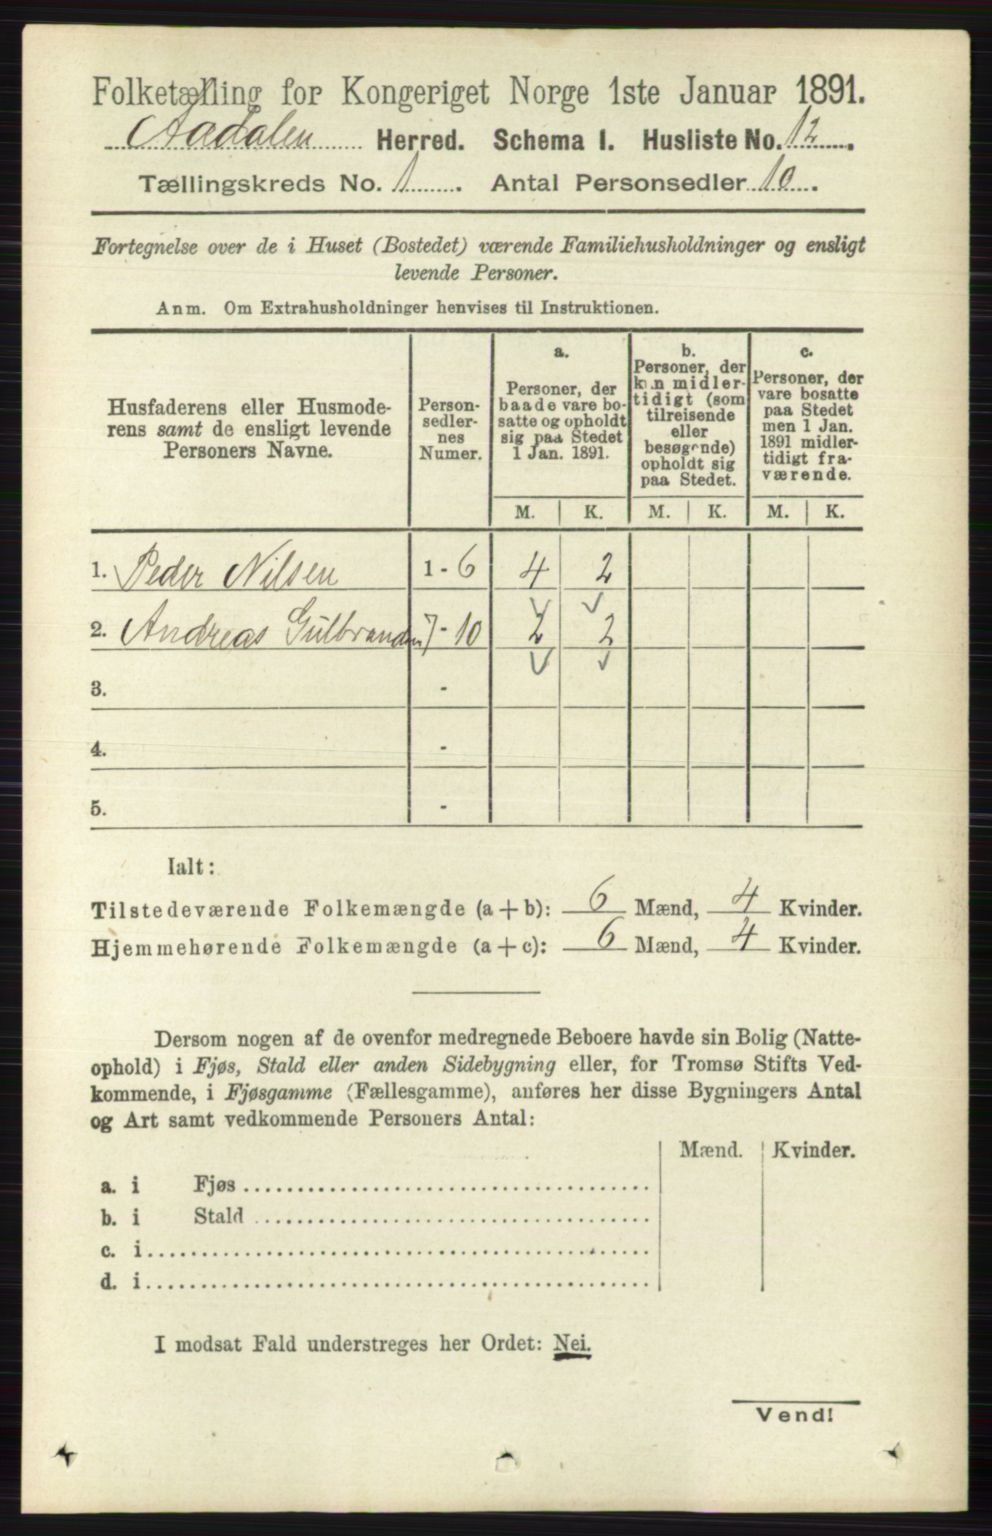 Folketælling for Kongeriget Norge 1ste Januar 1891.
Aadalen Herred. Schema I. Husliste No. 12.
Tællingskreds No. 1. Antal Personsedler 10.
Fortegnelse over de i Huset (Bostedet) værende Familiehusholdninger og ensligt
levende Personer.
Anm. Om Extrahusholdninger henvises til Instruktionen.
Husfaderens eller Husmode-
rens samt de ensligt levende
Personers Navne.
Person-
sedler-
nes
Numer.
a.
Personer, der
baade vare bo-
satte og opholdt
sig paa Stedet
1 Jan. 1891.
b.
Personer, der
kun midler-
tidigt (som
tilreisende
eller
besøgende)
opholdt sig
paa Stedet.
c.
Personer, der
vare bosatte
paa Stedet
men 1 Jan.
1891 midler-
tidigt fra-
værende.
M. K. M. K. M. K.
1. Peder Nilsen 1 - 6 4 2
2. Andreas Gulbrandsen 7 - 10 2 2
3. -
4. -
5. -
Ialt:
Tilstedeværende Folkemængde (a + b): 6 Mænd, 4 Kvinder.
Hjemmehørende Folkemængde (a + c): 6 Mænd, 4 Kvinder.
Dersom nogen af de ovenfor medregnede Beboere havde sin Bolig (Natte-
ophold) i Fjøs, Stald eller anden Sidebygning eller, for Tromsø Stifts Ved-
kommende, i Fjøsgamme (Fællesgamme), anføres her disse Bygningers Antal
og Art samt vedkommende Personers Antal:
Mænd. Kvinder.
a. i Fjøs
b. i Stald
c. i
d. i
I modsat Fald understreges her Ordet: Nei.
Vend!